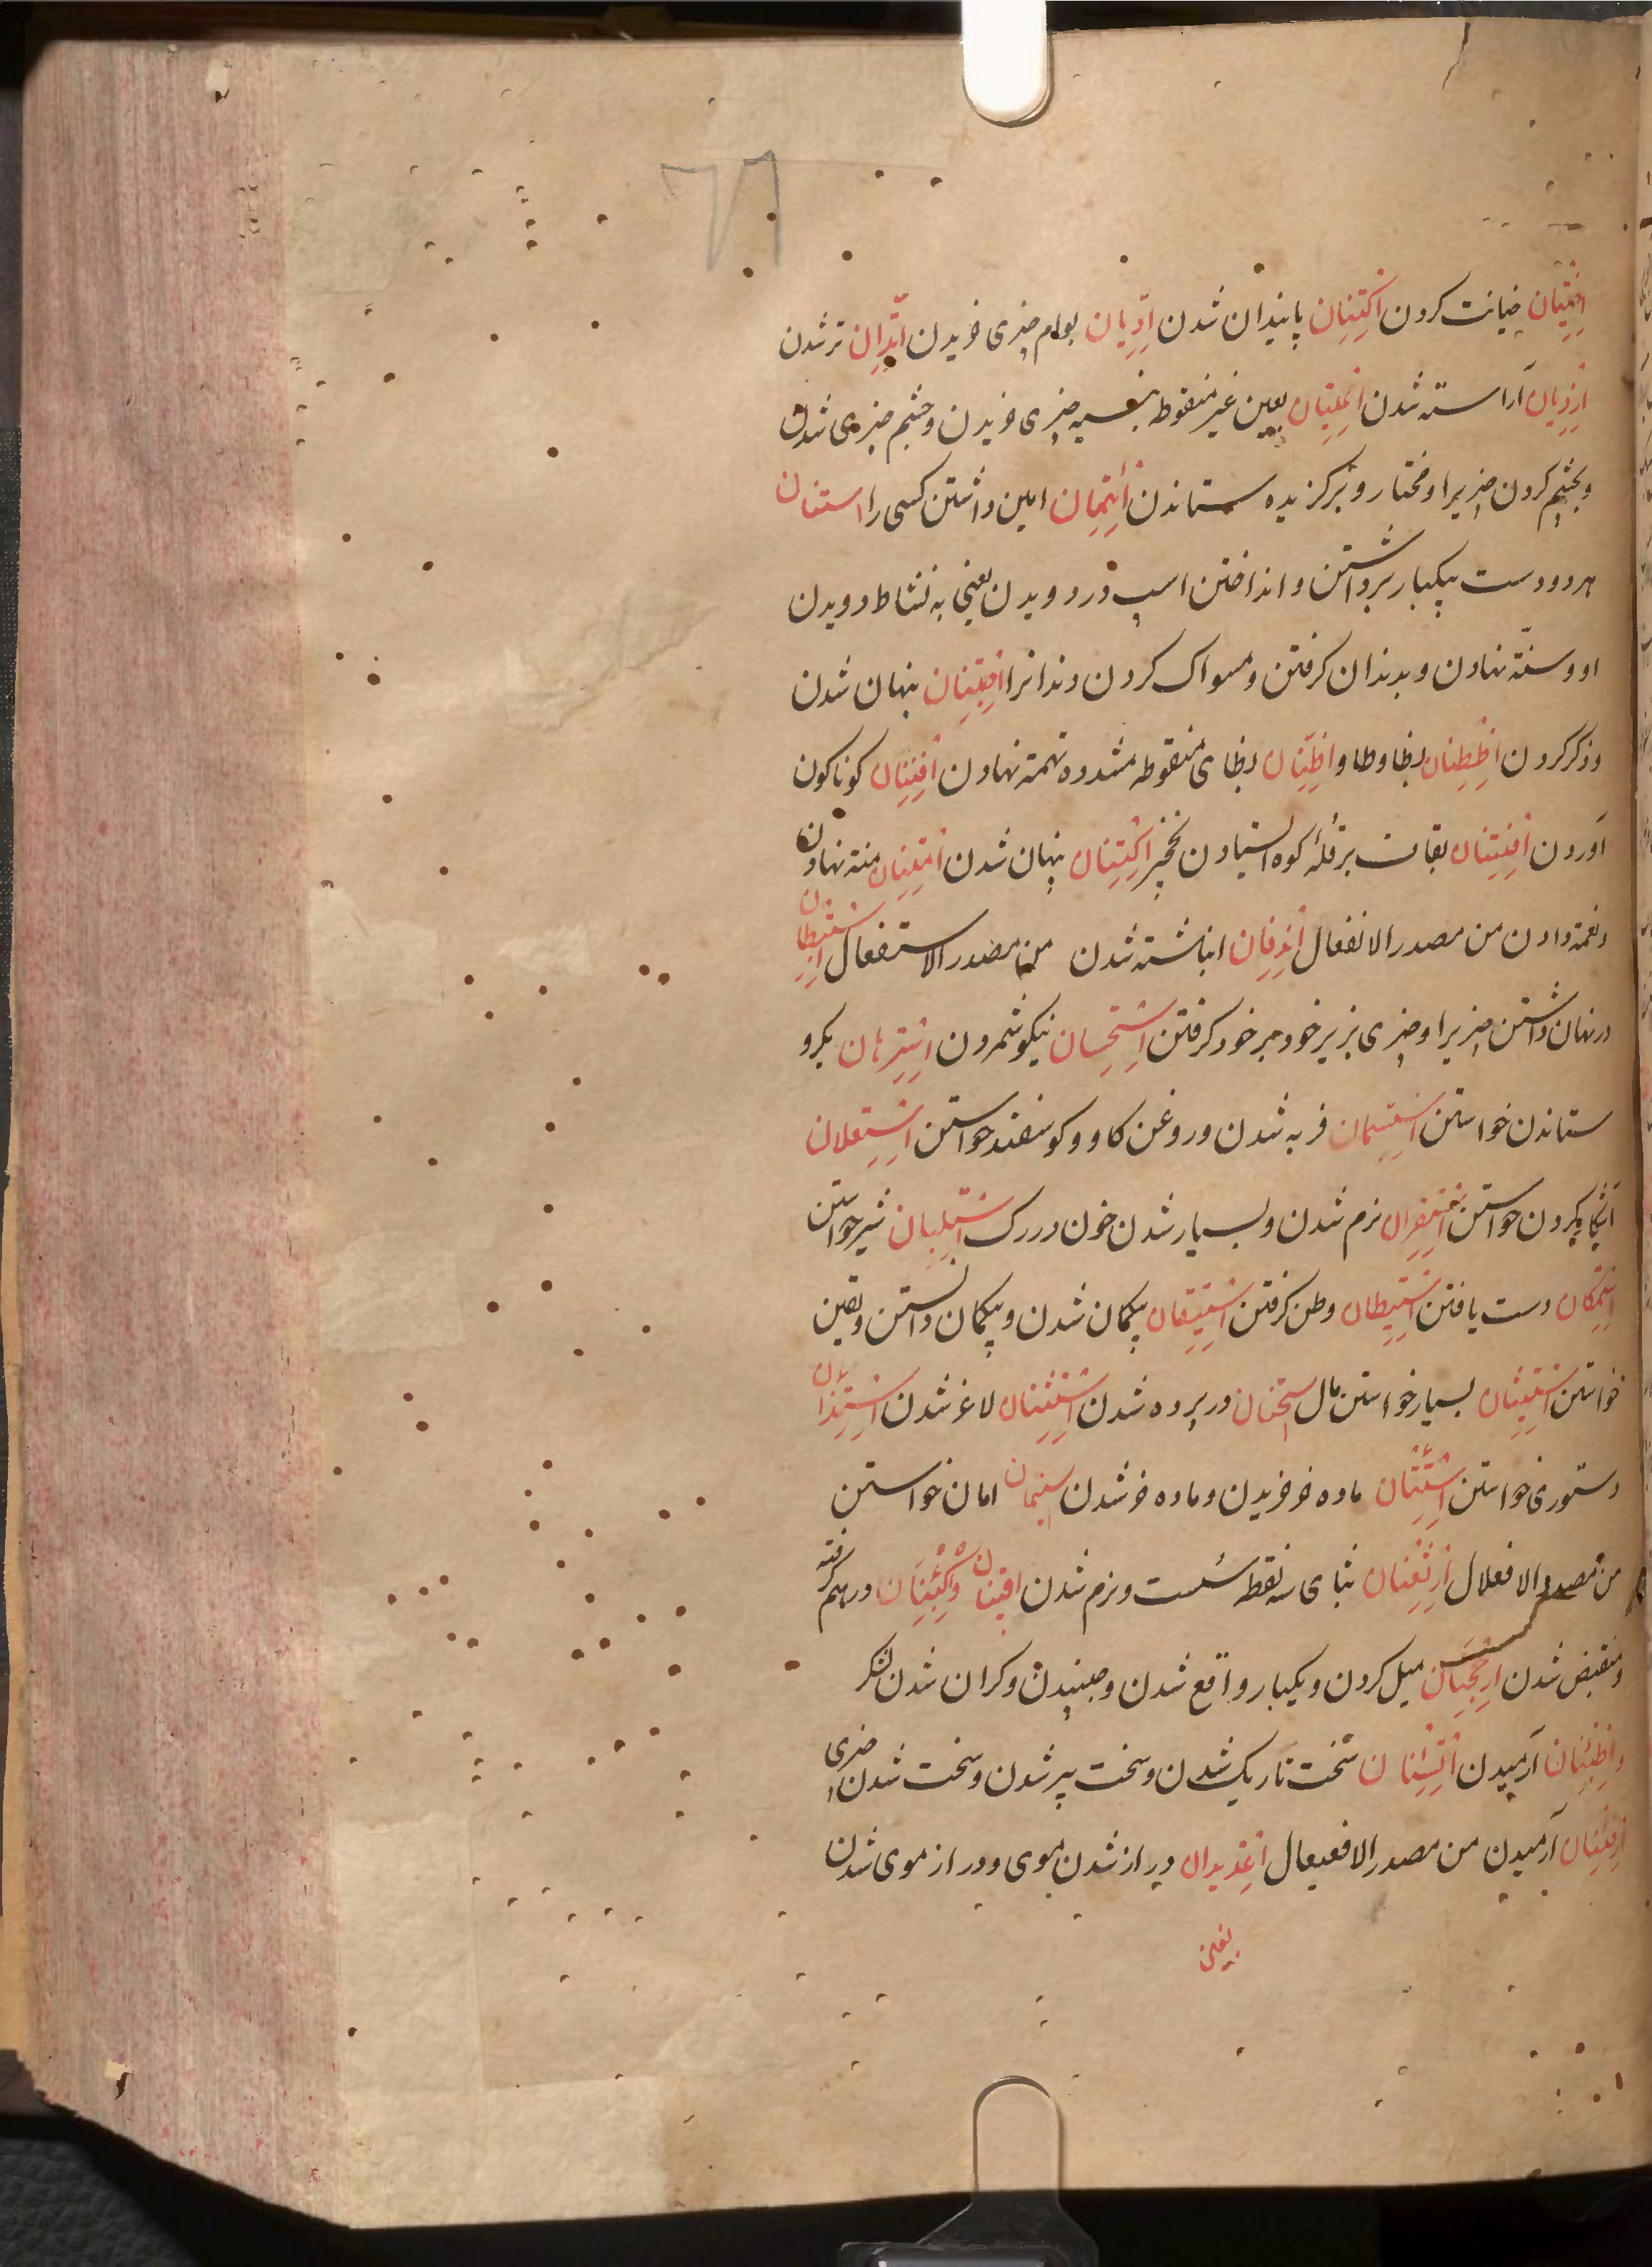 ٦٦
اختیان خیانت کردن اکتنان پایندان شدن ادّیان بوام چیزی خریدن اتّدان تر شدن
ازدیان آراسته شدن اعتیان بعین غیر منقوطه بنسیه چیزی خریدن و خشم چیزی شدن
و بخشم کردن چیزیرا و مختار و برگزیده ستاندن ائتمان امین داشتن کسی را استنان
هر دو دست بیکبار برداشتن و انداختن اسپ در دویدن یعنی به نشاط دویدن
او و سنّة نهادن و بدندان گرفتن و مسواک کردن دندانرا اجتنان پنهان شدن
و ذکر کردن اظطنان بظا و طا و اظّنان بظای منقوطه مشدده تهمة نهادن افتنان گوناگون
آوردن اقتنان بقاف بر قلهٔ کوه ایستادن نخچیر اکتنان پنهان شدن امتنان منة نهادن
و نعمة دادن من مصدر الانفعال اندفان انباشته شدن من مصدر الاستفعال استبطان
در نهان داشتن چیزیرا و چیزی بزیر خود بر خود گرفتن استحسان نیکو شمردن استرهان بگرو
ستاندن خواستن استسمان فربه شدن و روغن گاو و گوسفند خواستن استعلان
آشکارا کردن خواستن استقران نرم شدن و بسیار شدن خون در رگ استلبان شیر خواستن
استمکان دست یافتن استیطان وطن گرفتن استیقان بیگمان شدن و بیگمان دانستن و یقین
خواستن استیثان بسیار خواستن مال استجنان در پرده شدن استشنان لاغر شدن استئذان
دستوری خواستن استئتان ماده خر خریدن و ماده خر شدن استیمان امان خواستن
من مصدر الافعلال ارثعنان بثای سه نقطه سست و نرم شدن اقبنان و اکبئنان درهم گرفته
و منقبض شدن ارجحنان میل کردن و بیکبار واقع شدن و جنبیدن و گران شدن لشکر
و اطمئنان آرمیدن اقسئنان سخت تاریک شدن و سخت پیر شدن و سخت شدن چیزی
ارفئنان آرمیدن من مصدر الافعیعال اغدیدان دراز شدن موی و دراز موی شدن
بغین